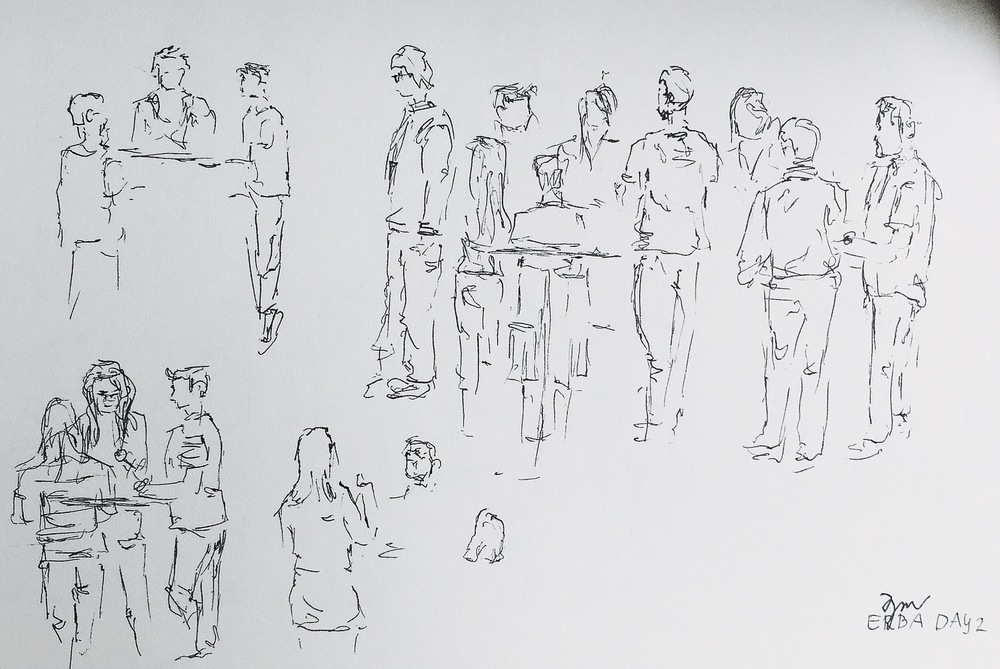 ERBA DAY 2